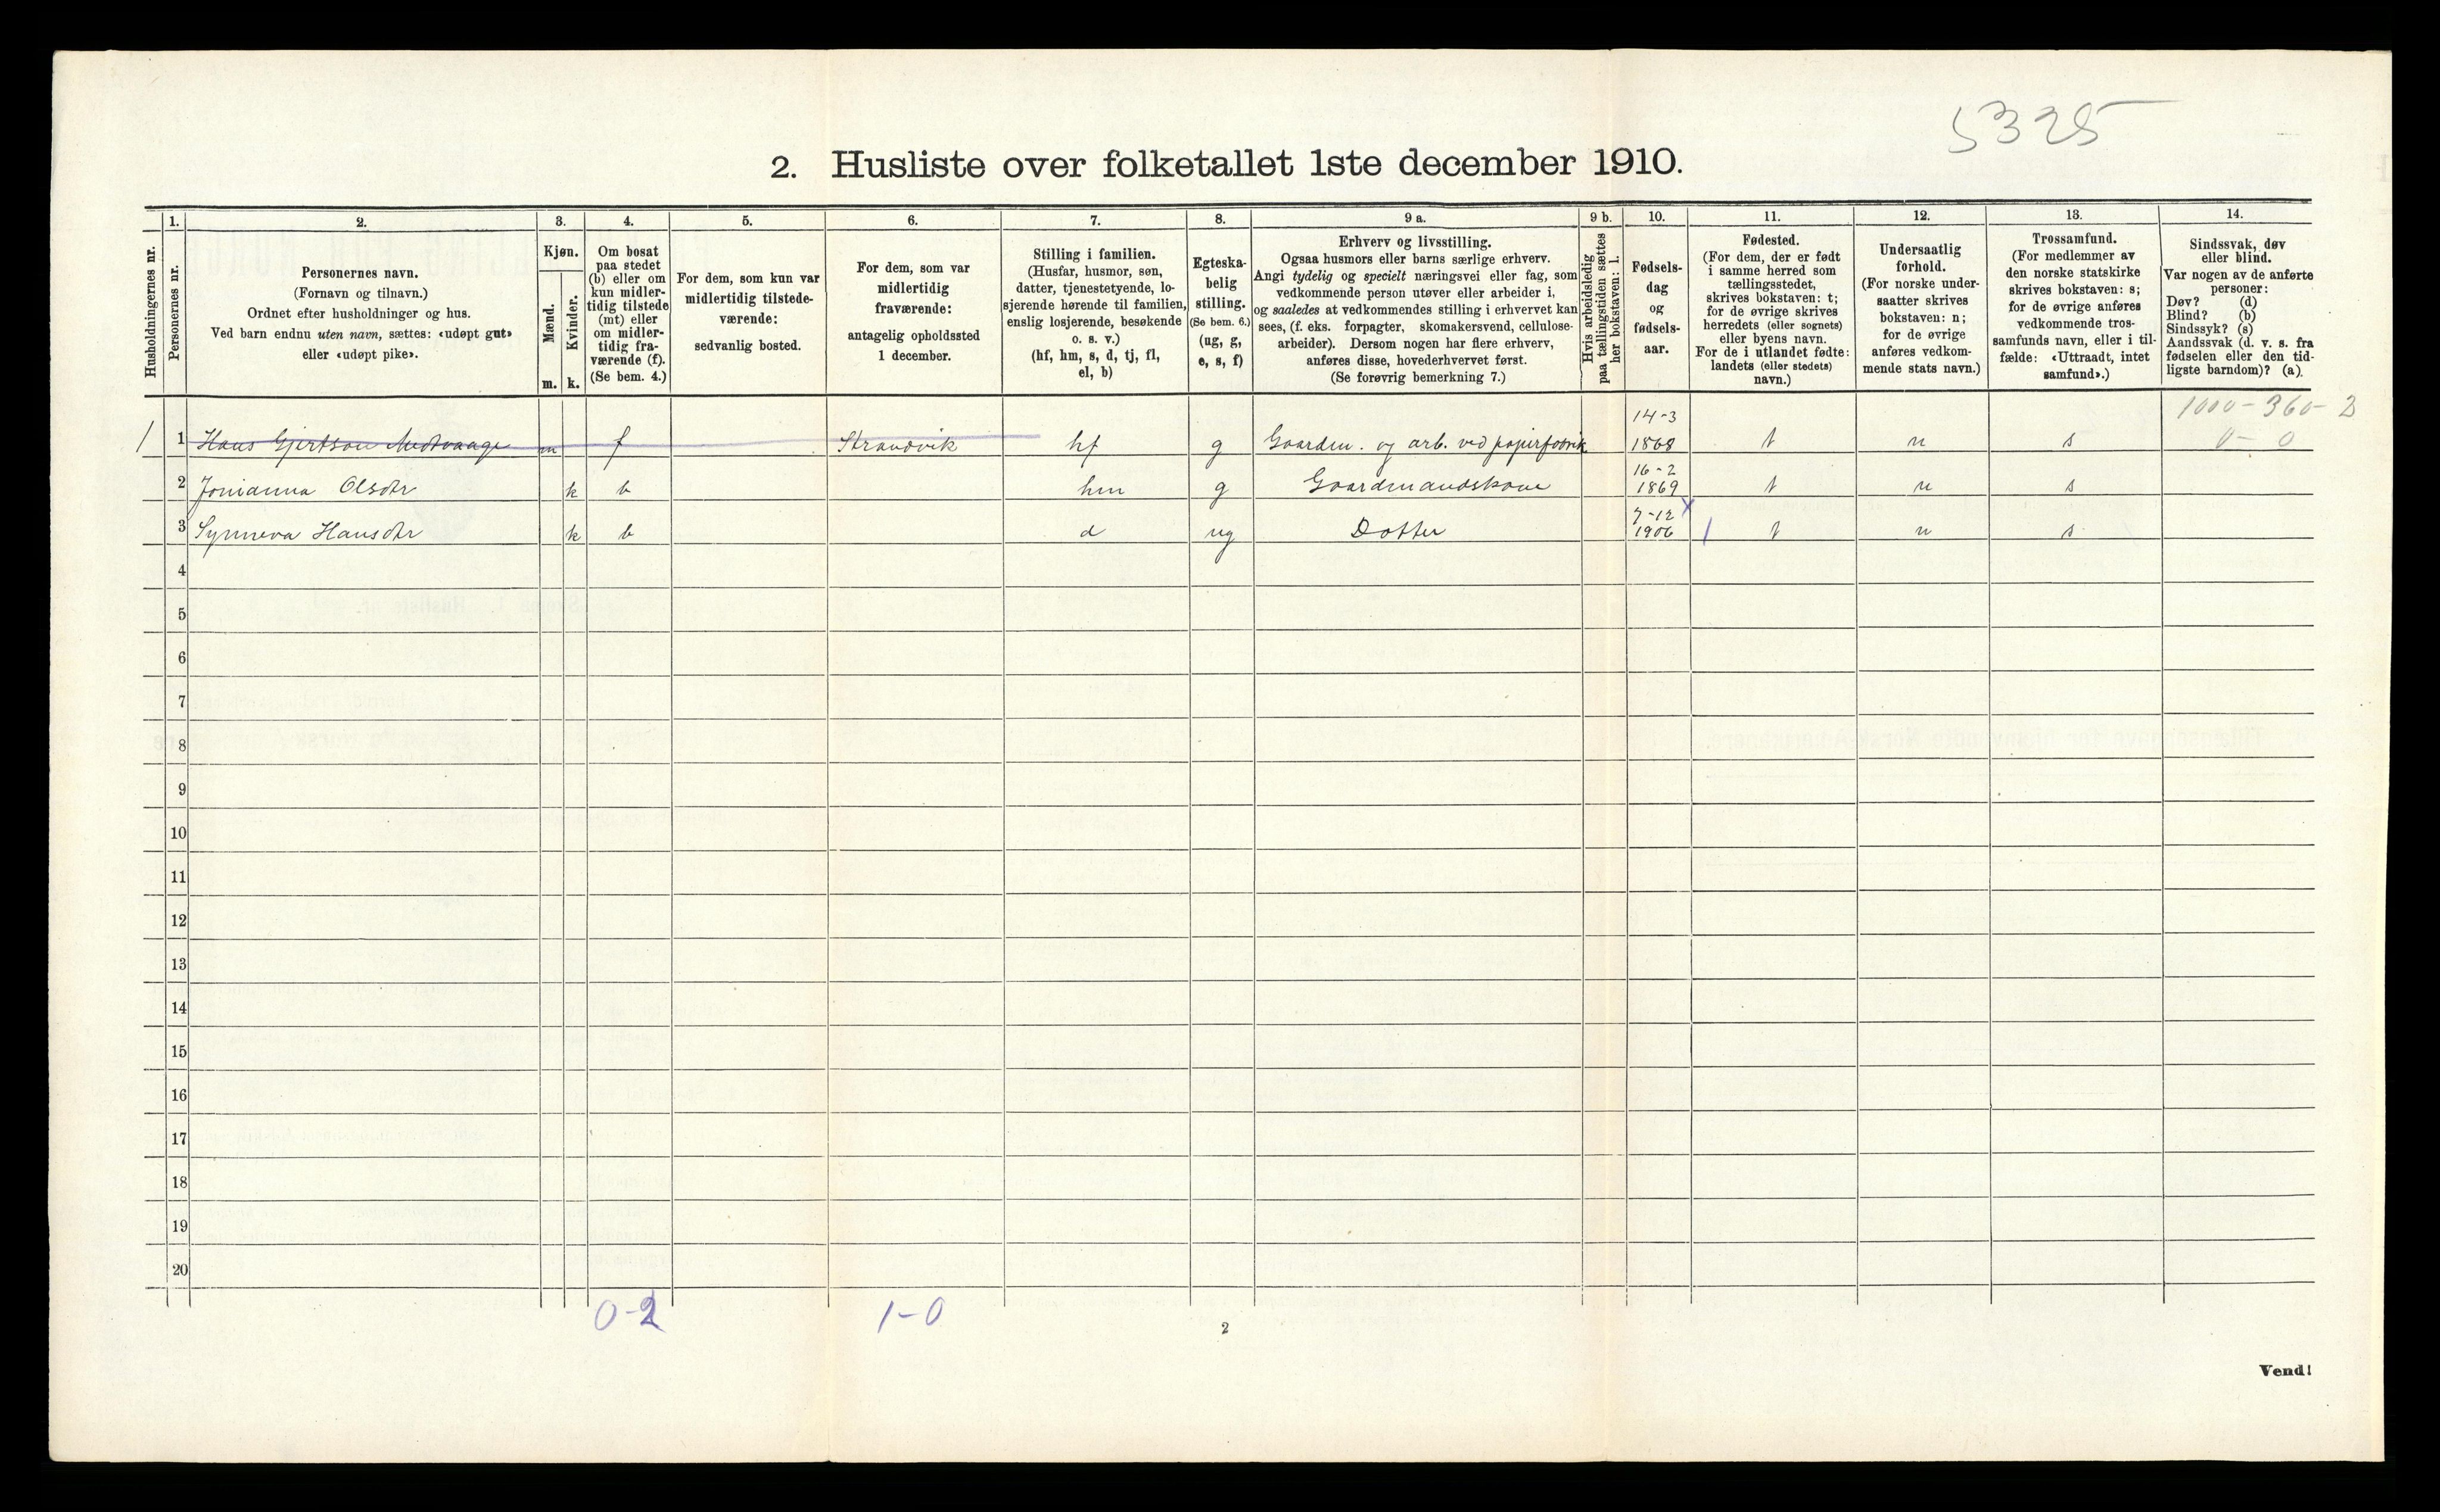 5325
2. Husliste over folketallet 1ste december 1910.
1. 2. 3. 4. 5. 6. 7. 8. 9 a. 9 b. 10. 11. 12. 13. 14.
Husholdningernes nr.
Personernes nr.
Personernes navn.
(Fornavn og tilnavn.)
Ordnet efter husholdninger og hus.
Ved barn endnu uten navn, sættes: «udøpt gut»
eller «udøpt pike».
Kjøn.
Mænd.
Kvinder.
m. k.
Om bosat
paa stedet
(b) eller om
kun midler-
tidig tilstede
(mt) eller
om midler-
tidig fra-
værende (f).
(Se bem. 4.)
For dem, som kun var
midlertidig tilstede-
værende:
sedvanlig bosted.
For dem, som var
midlertidig
fraværende:
antagelig opholdssted
1 december.
Stilling i familien.
(Husfar, husmor, søn,
datter, tjenestetyende, lo-
sjerende hørende til familien,
enslig losjerende, besøkende
o. s. v.)
(hf, hm, s, d, tj, fl,
el, b)
Egteska-
belig
stilling.
(Se bem. 6.)
(ug, g,
e, s, f)
Erhverv og livsstilling.
Ogsaa husmors eller barns særlige erhverv.
Angi tydelig og specielt næringsvei eller fag, som
vedkommende person utøver eller arbeider i,
og saaledes at vedkommendes stilling i erhvervet kan
sees, (f. eks. forpagter, skomakersvend, cellulose-
arbeider). Dersom nogen har flere erhverv,
anføres disse, hovederhvervet først.
(Se forøvrig bemerkning 7.)
Hvis arbeidsledig
paa tællingstiden sættes
her bokstaven: l.
Fødsels-
dag
og
fødsels-
aar.
Fødested.
(For dem, der er født
i samme herred som
tællingsstedet,
skrives bokstaven: t;
for de øvrige skrives
herredets (eller sognets)
eller byens navn.
For de i utlandet fødte:
landets (eller stedets)
navn.)
Undersaatlig
forhold.
(For norske under-
saatter skrives
bokstaven: n;
for de øvrige
anføres vedkom-
mende stats navn.)
Trossamfund.
(For medlemmer av
den norske statskirke
skrives bokstaven: s;
for de øvrige anføres
vedkommende tros-
samfunds navn, eller i til-
fælde: «Uttraadt, intet
samfund».)
Sindssvak, døv
eller blind.
Var nogen av de anførte
personer:
Døv? (d)
Blind? (b)
Sindssyk? (s)
Aandssvak (d. v. s. fra
fødselen eller den tid-
ligste barndom)? (a).
1000-360-2
0-0
14-3
1 1 Hans Gjertson Medvaage m f Strandvik hf g Gaardm. og arb. ved papirfabrik 1868 t n s
16-2
2 Jonianna Olsdtr k b hm g Gaardmandskone 1869 t n s
7-12
3 Synneva Hansdtr k b d ug Dotter 1906 t n s
4
5
6
7
8
9
10
11
12
13
14
15
16
17
18
19
20
0-2 1-0
2
Vend!